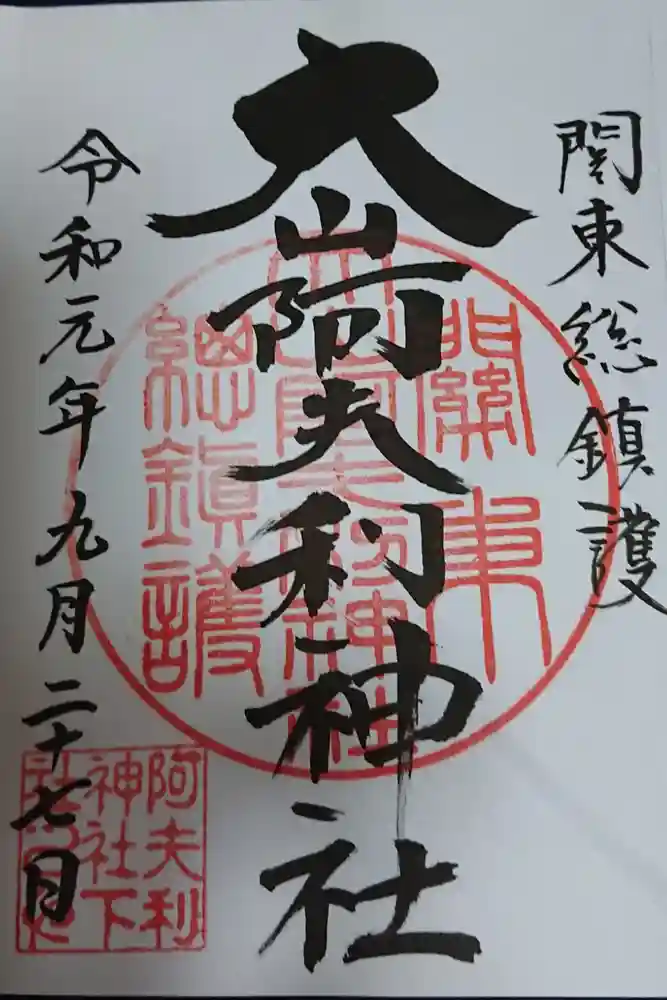 関東総鎮護
大山阿夫利神社
令和元年九月二十七日
關東
大山阿夫利神社
総鎮護
阿夫利
神社下